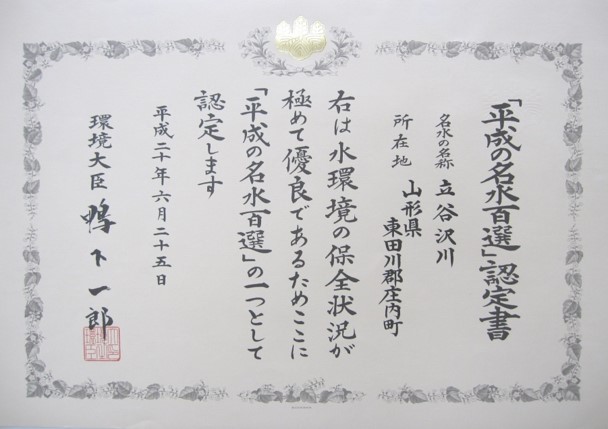 「平成の名水百選」認定書
名水の名称 立谷沢川
所在地 山形県
東田川郡庄内町
右は水環境の保全状況が
極めて優良であるためここに
「平成の名水百選」の一つとして
認定します
平成二十年六月二十五日
環境大臣 鴨下一郎